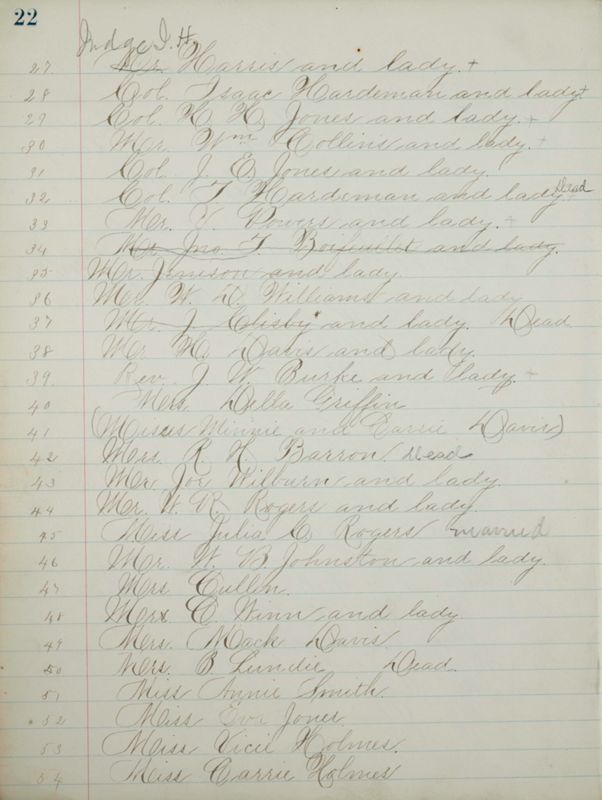 22
Judge I. H.
27 Mr. Harris and lady. +
28 Col. Isaac Hardeman and lady +
29 Col. H H Jones and lady. +
30 Mr. Wm Collins and lady. +
31 Col. J. E Jones and lady.
32 Col. T Hardeman and lady Dead
33 Mr. V. Powers and lady. +
34 Mr. Jno. T. Boifeuillet and lady.
35 Mr. Jemison and lady
36 Mr. W. D. Williams and lady
37 Mr. J. Clisby and lady. Dead
38 Mr M. Davis and lady.
39. Rev. J. W. Burke and lady. +
40 Mrs. Della Griffin
41 (Misses Minnie and Carrie Davis)
42 Mrs. R. H. Barron Dead
43 Mr Joe Wilburn and lady
44 Mr. W. R. Rogers and lady.
45 Miss Julia C Rogers married
46 Mr. W. B. Johnston and lady.
47 Mrs Cullen.
48 Mrs E Winn and lady
49 Mrs. Mack Davis
50 Mrs. B. Lundie Dead.
51 Miss Annie Smith.
52 Miss Eva Jones.
53 Miss Vicil Holmes.
54 Miss Carrie Holmes